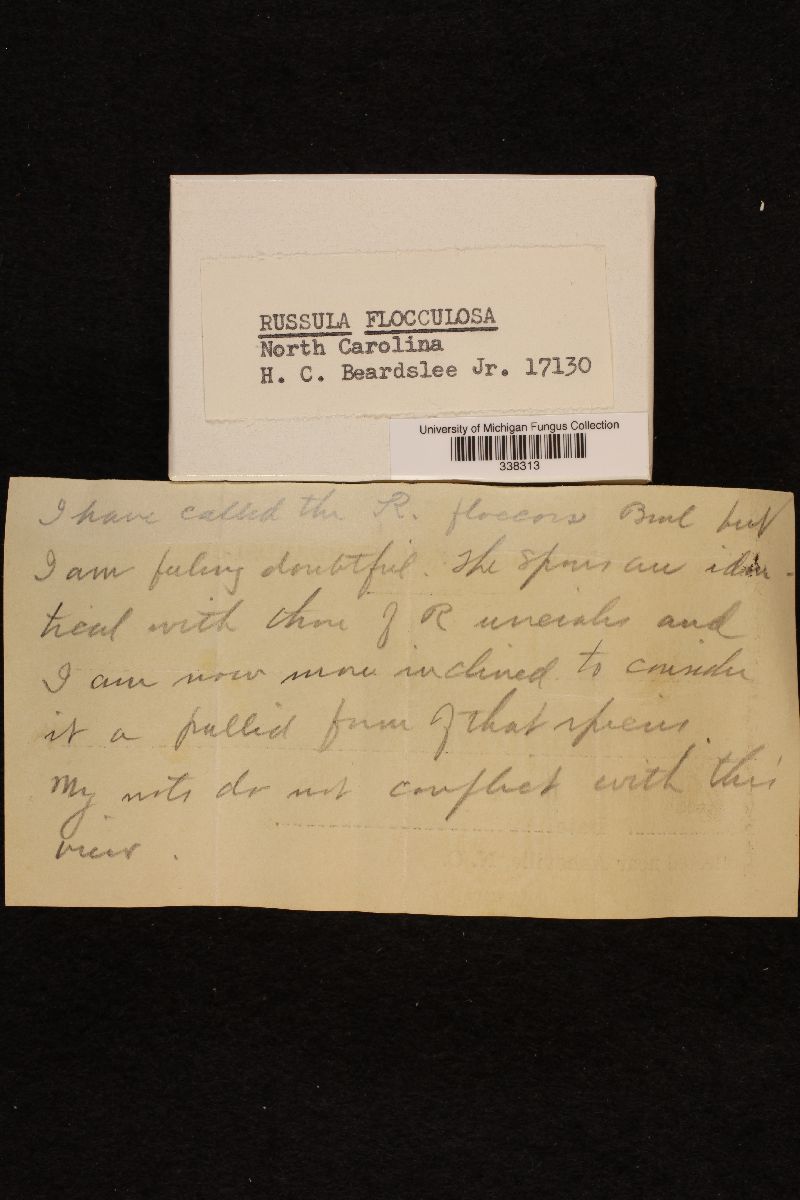 RUSSULA FLOCCULOSA
North Carolina
H. C. Beardslee Jr. 17130
University of Michigan Fungus Collection
338313
I have called this R. floccosa Burl but
I am feeling doubtful. The spores are iden-
tical with those of R uncialis and
I am now more inclined to consider
it a pallid form of that species.
My nots do not conflict with this
view.